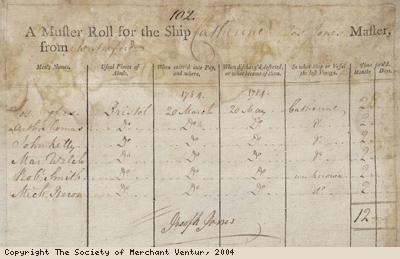 102.
A Muster Roll for the Ship Catharine Jos. Jones Master,
from
Men's Names. Usual Places of Abode. When enter'd into Pay, and where. When discharg'd, deserted, or what became of them. In what Ship or Vessel the last Voyage. Time Months Days.
1784. 1784.
Jos. Jones Bristol 20 March 20 May Catharine 2
Arth. Thomas Do Do Do Do 2
John Kelly Do Do Do Do 2
Mar. Welch Do Do Do Do 2
Rob. Smith Do Do Do unknown 2
Mich. Do Do Do Do 2
12
Joseph Jones
Copyright The Society of Merchant Ventur, 2004